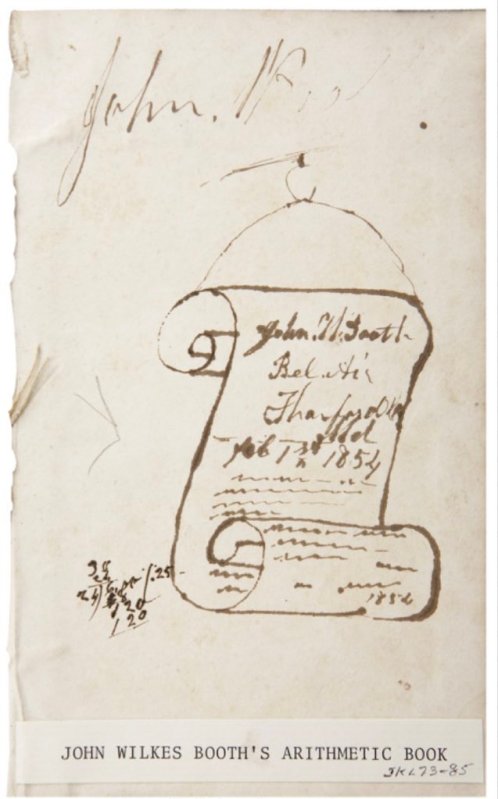 John. W
John. W. Booth
Bel Air
Harford Co
Md
Feb 1st 1854
1854
.25
120
120
JOHN WILKES BOOTH'S ARITHMETIC BOOK
JKL73-85